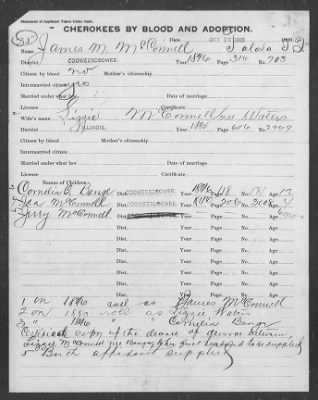 CHEROKEES BY BLOOD AND ADOPTION.
Date OCT 1900
James M. McConnell Talala I.T.
District COOWEESCOOWEE. Year 1896 Page 310 No. 703
Citizen by blood no Mother's citizenship
Intermarried citizen yes
Married under what law Date of marriage
License Certificate
Wife's name Lizzie McConnell nee Waters
District ILLINOIS. Year 1880 Page 606 No. 2269
Citizen by blood Mother's citizenship
Intermarried citizen
Married under what law Date of marriage
License Certificate
Names of Children:
Cornelia Benge Dist. COOWEESCOOWEE. Year 1896 Page 118 No. 131 Age 12
Ida McConnell Dist. COOWEESCOOWEE. Year 1896 Page 206 No. 3008 Age 4
Jerry McConnell Dist. Year Page No. Age
Dist. Year Page No. Age
Dist. Year Page No. Age
Dist. Year Page No. Age
Dist. Year Page No. Age
Dist. Year Page No. Age
Dist. Year Page No. Age
1 on 1896 roll as James McConnell
2 on 1880 roll as Lizzie Waters
3 " 1896 " Cornelia Benge
copy of the decree of divorce between
Lizzie McConnell nee Benge & her first husband to be supplied
5 Birth affidavit supplied